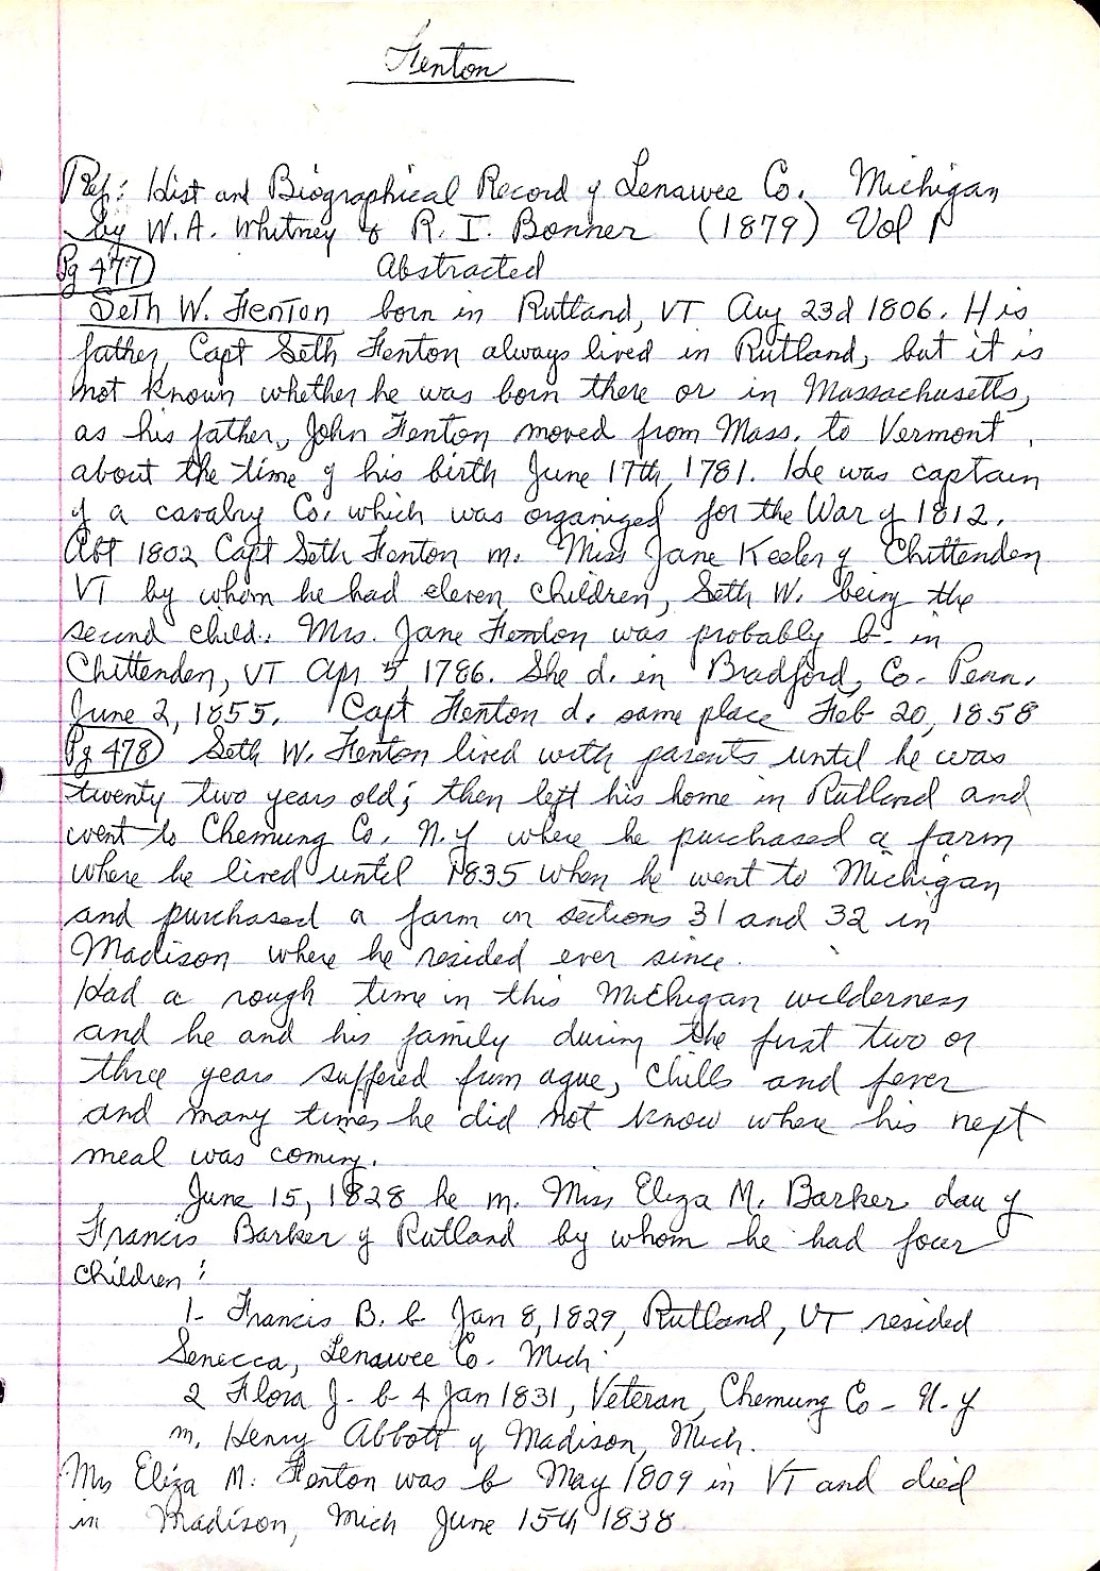 Fenton
Ref: Hist and Biographical Record of Lenawee Co. Michigan
by W. A. Whitney & R. I. Bonner (1879) Vol 1
Pg 477) Abstracted
Seth W. Fenton born in Rutland, VT Aug 23d 1806. His
father, Capt Seth Fenton always lived in Rutland, but it is
not known whether he was born there or in Massachusetts,
as his father, John Fenton moved from Mass. to Vermont,
about the time of his birth June 17th, 1781. He was captain
of a cavalry Co. which was organized for the War of 1812.
Abt 1802 Capt Seth Fenton m. Miss Jane Keeler of Chittenden
VT by whom he had eleven children, Seth W. being the
second child. Mrs. Jane Fenton was probably b- in
Chittenden, VT Apr 5 1786. She d. in Bradford, Co. Penn.
June 2, 1855. Capt Fenton d. same place Feb 20, 1858
Pg 478) Seth W. Fenton lived with parents until he was
twenty two years old; then left his home in Rutland and
went to Chemung Co. N.Y where he purchased a farm
where he lived until 1835 when he went to Michigan
and purchased a farm on sections 31 and 32 in
Madison where he resided ever since.
Had a rough time in this Michigan wilderness
and he and his family during the first two or
three years suffered from ague, chills and fever
and many times he did not know where his next
meal was coming.
June 15, 1828 he m. Miss Eliza M. Barker dau of
Francis Barker of Rutland by whom he had four
children:
1- Francis B. b Jan 8, 1829, Rutland, VT resided
Senecca, Lenawee Co. Mich.
2 Flora J. b 4 Jan 1831, Veteran, Chemung Co - N.Y
m. Henry Abbott of Madison, Mich.
Mrs Eliza M. Fenton was b May 1809 in VT and died
in Madison, Mich June 15th 1838